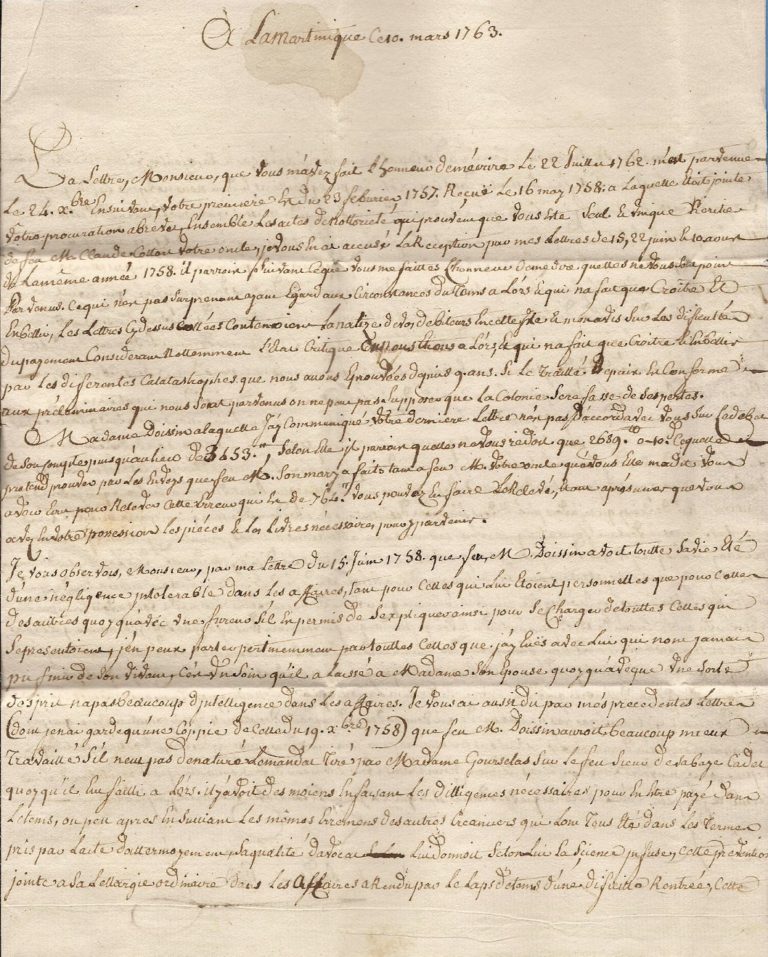 A Lamartinique Ce 10. mars 1763.
La Lettre, Monsieur, que vous m'avez fait L honneur de mécrire Le 22 Juillet 1762. m'est parvenue
Le 24. x.bre Ensuivant, votre premiere Est du 23 febvrier 1757. Reçue Le 16 may 1758. a Laquelle Etoit jointe
votre procuration Ensemble Les actes de Nottorieté qui prouvent que vous Ete Seul & unique Heritier
de feu M. Claude Lottou votre oncle, je vous En ai accusé La Réception par mes Lettres de 15, 22 juin & 10 aoust
de La même année 1758. il paroit suivant Ce que vous me faittes L'honneur de me dire quelles ne vous sont point
Parvenus. Ce qui n'est pas surprenant ayant Egard aux Circonstances du tems a Lors & qui na fait que Croitre Et
Embellir, Les Lettres Cy dessus Contenoient La nature de vos debiteurs En cette Isle & mon avis Sur Les difficultés
du payement Considerant Nottemment L'Etat Critique a Lors, & qui na fait que Croitre & Embellir
par Les differentes Catatastrophes que nous avons Eprouvées depuis 9. ans. Si Le Traitté de paix Est Conforme
aux préliminaires que nous Sont parvenus on ne peut pas Supposer que La Colonie Se refasse de Ses pertes.
Madame Doissin a laquelle J'ay Communiqué votre derniere Lettre n'est pas D'accord avec vous Sur Le debet
de Son Compte puis qu'au lieu de 3453.tt, Selon Elle il paroit quelle ne vous redoit que 2689.tt 0.10. Lequelle
pretend prouver par Les Envoys que feu M. Son mary a faits tant a feu M. votre oncle qu'a vous
Cette Erreur qui Est de 764.tt vous pouvez En faire La Relevé,
avez En votre possession Les piéces & Les Livres nécessaires pour y parvenir.
Je vous observois, Monsieur, par ma Lettre du 15. Juin 1758. que feu M. Doissin avoit toutte Sa vie Eté
d'une négligence intolerable dans Les affaires, tant pour Celles qui Lui Etoient personnelles que pour Celles
des autres quoy qu'avec une fureur S'il Est permis de S'expliquer ainsi pour Se Charger de touttes Celles qui
Se presentoient, j'en peux parler pertinemment par touttes Celles que j'ay Eües avec Lui qui n'ont jamais
pu finir de Son vivant, C'est un Soin qu'il a Laissé a Madame Son Epouse quoy qu'avéque une Sorte
d'esprit n'a pas beaucoup d'intelligence dans Les affaires. Je vous ai aussi dit par mes precedentes Lettres
(dont je n'ai gardé qu'une Coppie de Celle du 19. x.bre 1758) que feu M. Doissin auroit beaucoup mieux
Travaillé S'il n'eut pas denaturé Le mandat Tiré par Madame Gourselas Sur Le feu Sieur Cadet
quoy qu'il Eut failli a Lors. il y avoit des moiens En faisant Les dilligences nécessaires pour En Etre payé dans
Le tems, ou peu aprés En Suivant Les mêmes Erremens des autres Creanciers qui L'ont Tous Eté dans Les Termes
pris par L'acte d'attermoyement, Sa qualité d'avocat Lui donnoit Selon Lui La Science infuse, Cette pretention
jointe a Sa Lettargie ordinaire dans Les Affaires a Rendu par Le Laps de tems d'une difficille Rentrée, Cette